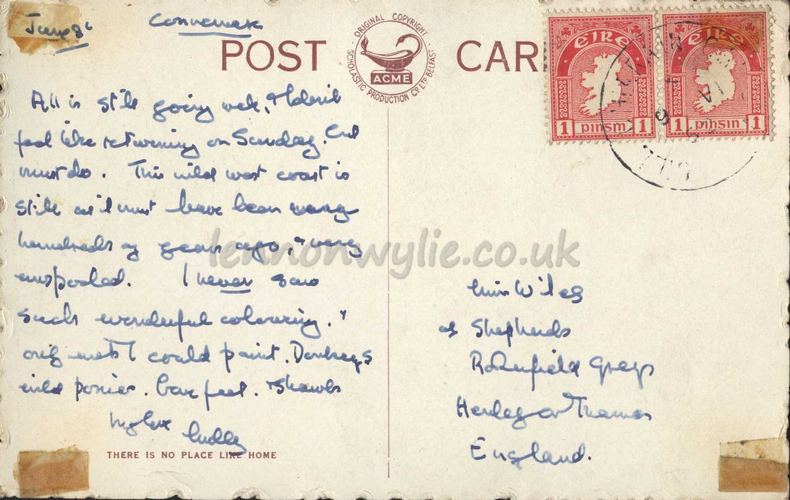 June 8
Connemara
POST CARD
ORIGINAL COPYRIGHT
ACME
SCHOLASTIC PRODUCTION CO. LTD. BELFAST
EIRE EIRE
1 pinsin 1 pinsin
All is still going well, & I don't
feel like returning on Sunday, but
must do. This wild west coast is
still as it must have been
hundreds of years ago, & very
unspoiled. I never saw
such wonderful colouring, &
only wish I could paint. Donkeys
wild ponies. bare feet. & shawls
My love
lennonwylie.co.uk
Miss Wiles
at Shepherds
Rotherfield Greys
Henley on Thames
England.
THERE IS NO PLACE LIKE HOME